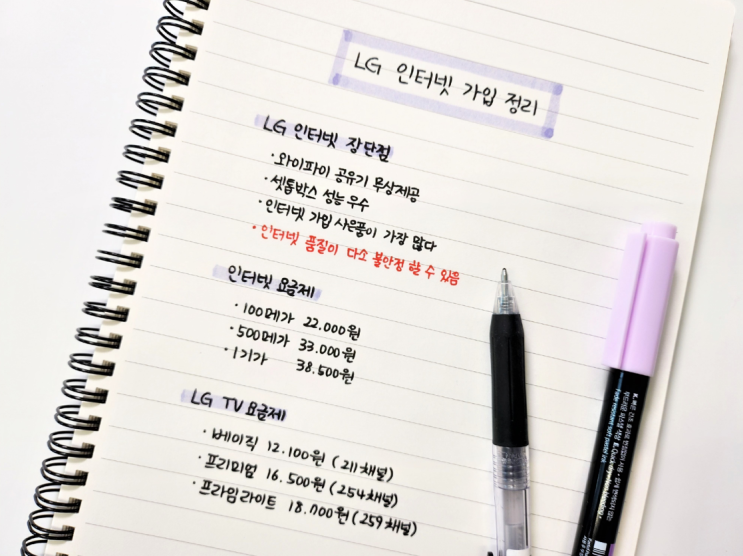 LG 인터넷 가입 정리
LG 인터넷 장단점
· 와이파이 공유기 무상제공
· 셋톱박스 성능 우수
· 인터넷 가입 사은품이 가장 많다
· 인터넷 품질이 다소 불안정 할 수 있음
인터넷 요금제
· 100메가 22.000원
· 500메가 33.000원
· 1기가 38.500원
LG TV 요금제
· 베이직 12.100원 (211채널)
· 프리미엄 16.500원 (254채널)
· 프라임라이트 18.700원 (259채널)